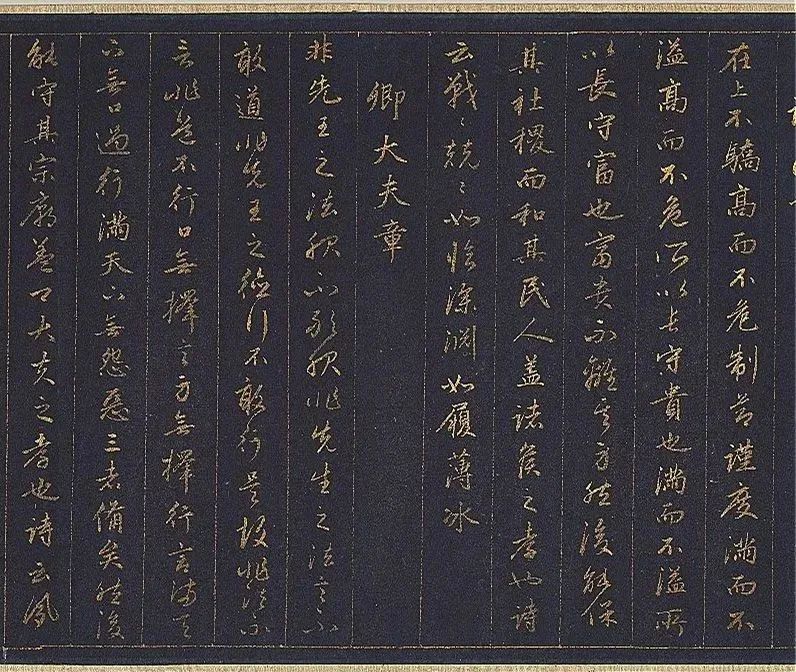 在上不驕高而不危制節謹度滿而不
溢高而不危所以長守貴也滿而不溢所
以長守富也富貴不離其身然後能保
其社稷而和其民人盖諸侯之孝也詩
云戰〻兢〻如臨深淵如履薄冰
卿大夫章
非先王之法服不敢服非先王之法言不
敢道非先王之德行不敢行是故非法不
言非道不行口無擇言身無擇行言滿天
下無口過行滿天下無怨惡三者備矣然後
能守其宗廟盖卿大夫之孝也詩云夙